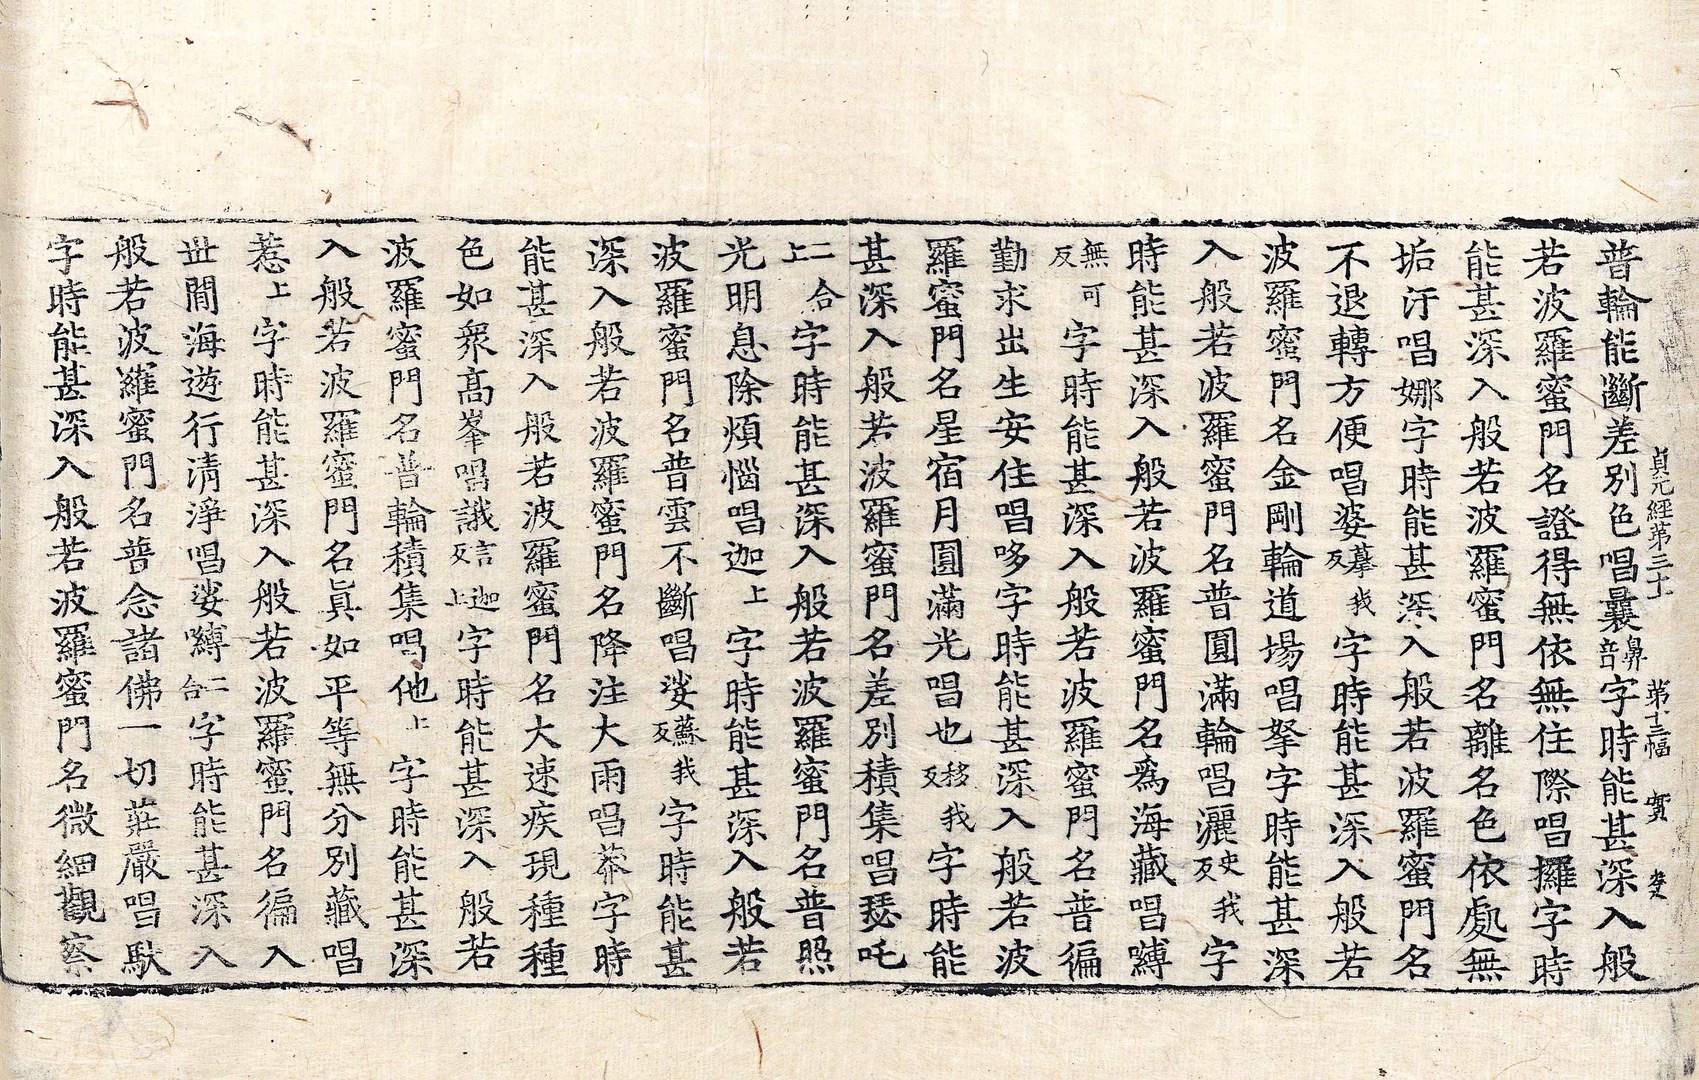 貞元經第三十 第十三幅 實
普輪能斷差別色唱曩鼻音字時能甚深入般
若波羅蜜門名證得無依無住際唱攞字時
能甚深入般若波羅蜜門名離名色依處無
垢汙唱娜字時能甚深入般若波羅蜜門名
不退轉方便唱婆蓦我反字時能甚深入般若
波羅蜜門名金剛輪道場唱拏字時能甚深
入般若波羅蜜門名普圓滿輪唱灑史我反字
時能甚深入般若波羅蜜門名為海藏唱嚩
無可反字時能甚深入般若波羅蜜門名普徧
勤求出生安住唱哆字時能甚深入般若波
羅蜜門名星宿月圓滿光唱也移我反字時能
甚深入般若波羅蜜門名差別積集唱瑟吒
二合上字時能甚深入般若波羅蜜門名普照
光明息除煩惱唱迦上字時能甚深入般若
波羅蜜門名普雲不斷唱娑蘇我反字時能甚
深入般若波羅蜜門名降注大雨唱莽字時
能甚深入般若波羅蜜門名大速疾現種種
色如眾高峯唱誐言迦反上字時能甚深入般若
波羅蜜門名普輪積集唱他上字時能甚深
入般若波羅蜜門名真如平等無分別藏唱
惹上字時能甚深入般若波羅蜜門名徧入
世間海遊行清淨唱娑嚩二合字時能甚深入
般若波羅蜜門名普念諸佛一切莊嚴唱馱
字時能甚深入般若波羅蜜門名微細觀察